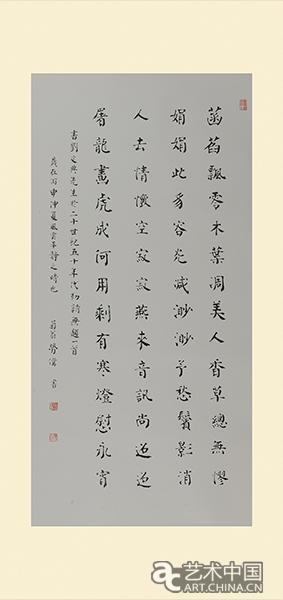 菡萏飄零木葉凋美人香草總無憀
娟娟此豸容光減渺渺予愁鬢影消
人去情懷空寂寂燕來音訊尚迢迢
屠龍畫虎成何用剩有寒燈慰永宵
書劉文典先生於二十世紀五十年代初詩無題一首
歲在丙申仲夏風靜之時也
書
艺术中国
ART.CHINA.CN